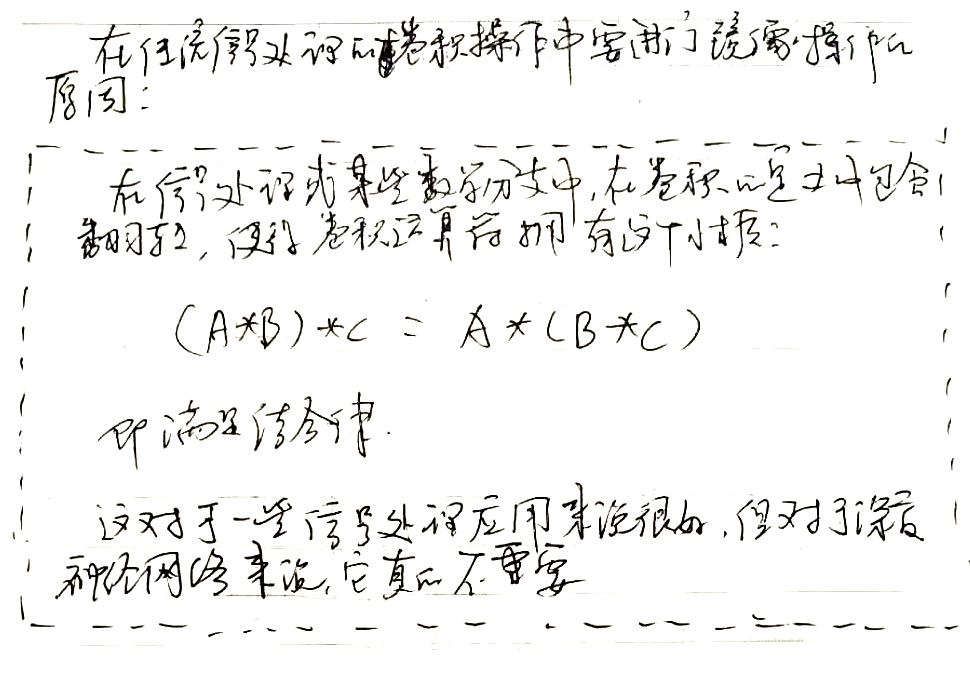 在传统信号处理的卷积操作中要进行镜像操作的
原因：
在信号处理或某些数学分支中，在卷积的定义中包含
翻转，使得卷积运算符拥有这个性质：
(A*B)*C = A*(B*C)
即满足结合律.
这对于一些信号处理应用来说很好，但对于深度
神经网络来说，它真的不重要